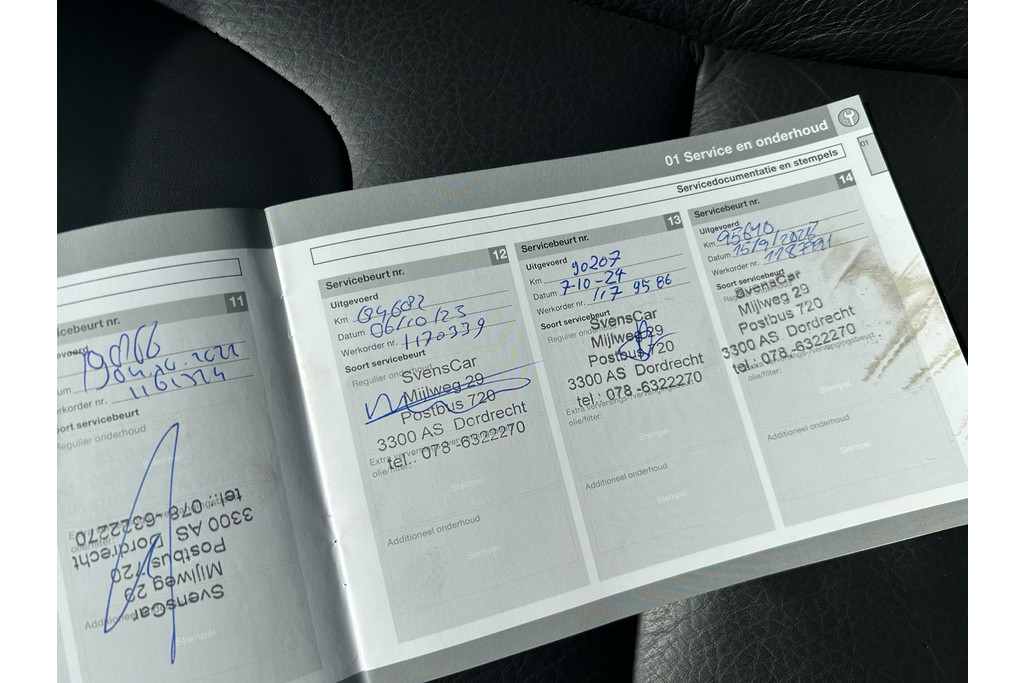 01 Service en onderhoud
Servicedocumentatie en stempels
01
11
Servicebeurt nr.
1161324
Werkorder nr.
Soort servicebeurt
Regulier onderhoud
SvensCar
Mijlweg 29
Postbus 720
3300 AS Dordrecht
tel.: 078-6322270
olie/filter:
Stempel
Servicebeurt nr. 12
Uitgevoerd
Km 84682
Datum 06/10/23
Werkorder nr. 1170339
Soort servicebeurt
Regulier onderhoud
SvensCar
Mijlweg 29
Postbus 720
3300 AS Dordrecht
tel.: 078-6322270
olie/filter:
Stempel
Additioneel onderhoud
Stempel
Servicebeurt nr. 13
Uitgevoerd
Km 90207
Datum 7-10-24
Werkorder nr. 117 95 86
Soort servicebeurt
Regulier onderhoud
SvensCar
Mijlweg 29
Postbus 720
3300 AS Dordrecht
tel.: 078-6322270
olie/filter:
Stempel
Additioneel onderhoud
Stempel
Servicebeurt nr. 14
Uitgevoerd
Km 95610
Datum
Werkorder nr.
Soort servicebeurt
SvensCar
Mijlweg 29
Postbus 720
3300 AS Dordrecht
tel.: 078-6322270
olie/filter:
Stempel
Additioneel onderhoud
Stempel